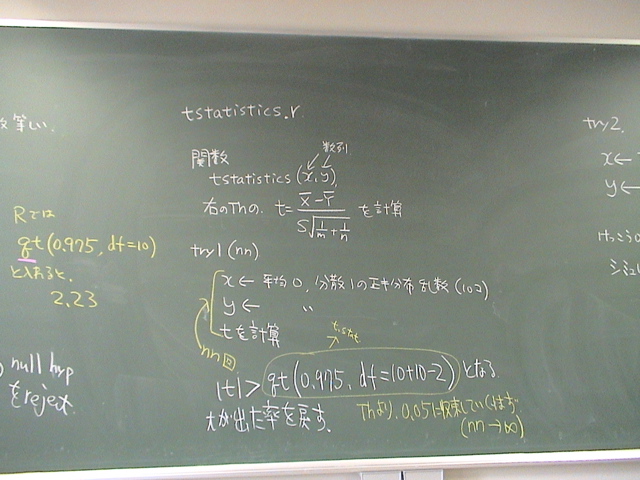 等しい.
Rでは
qt(0.975, df=10)
と入れると,
2.23
null hyp
をreject
tstatistics.r
関数
数列
tstatistics (x, y)
右のThの. t = x̄ - ȳ / S√(1/m + 1/n) を計算
try1 (nn)
x ← 平均0, 分散1の正規分布乱数 (10コ)
y ← 〃
tを計算
nn回
t.stat
|t| > qt(0.975, df=10+10-2) となる
tが出た率を戻す.
Thより, 0.05に収束していくはず.
(nn→∞)
try2.
x ←
y ←